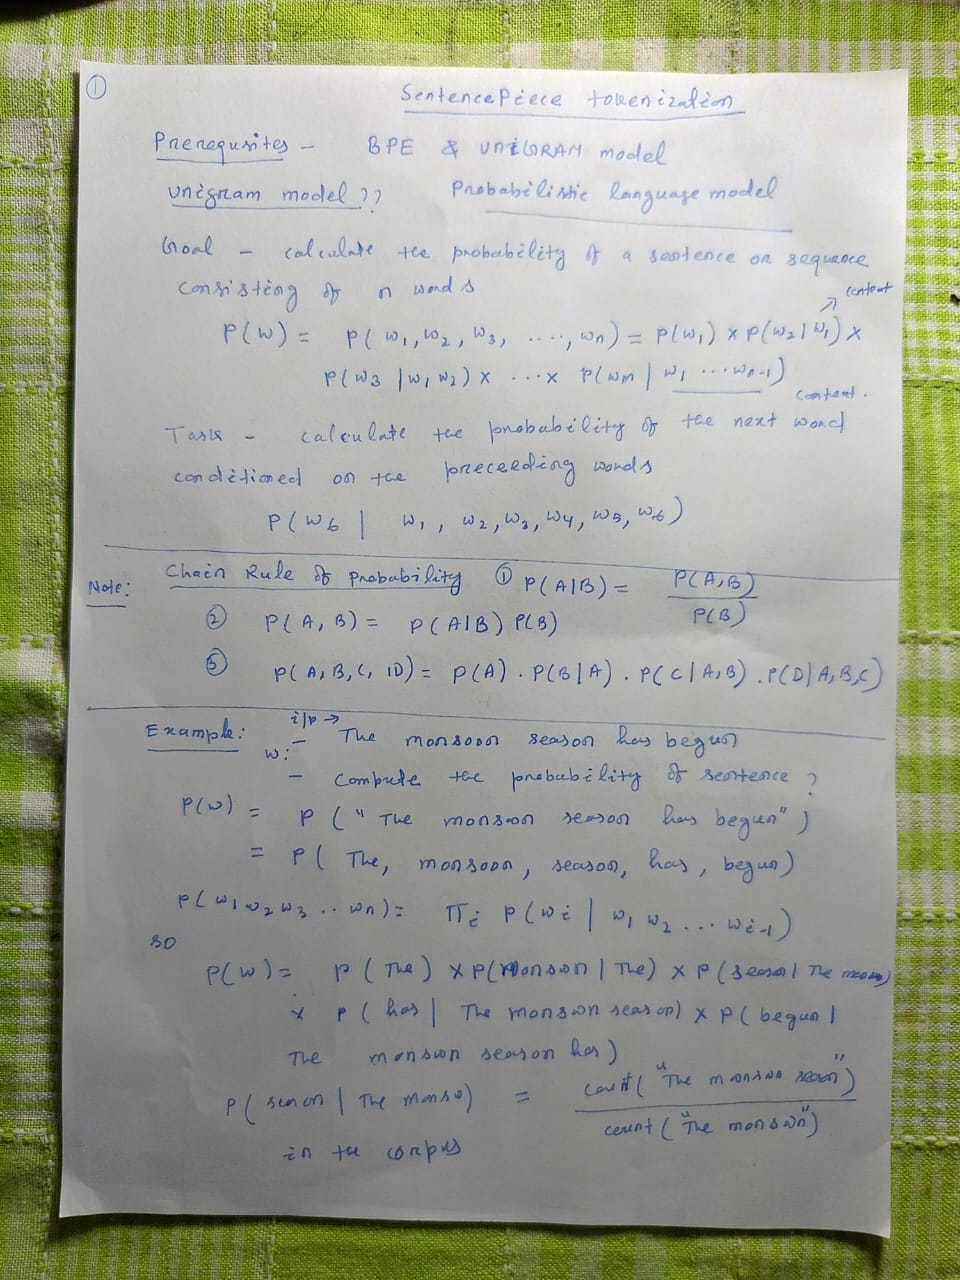 ①
SentencePiece tokenization
Prerequsites - BPE & UNIGRAM model
Unigram model ?? Probabilistic language model
Goal - calculate the probability of a sentence or sequence
consisting of n words
context
P(W) = P(w₁, w₂, w₃, ...., wₙ) = P(w₁) × P(w₂|w₁) ×
P(w₃|w₁,w₂) × ...× P(wₘ | w₁ ...wₙ₋₁)
context.
Task - calculate the probability of the next word
conditioned on the preceeding words
P(w₆ | w₁, w₂, w₃, w₄, w₅, w₆)
Note: Chain Rule of Probability ① P(A|B) = P(A,B) / P(B)
② P(A, B) = P(A|B) P(B)
⑤ P(A,B,C,D) = P(A) . P(B|A) . P(C|A,B) . P(D|A,B,C)
Example: i/p → The monsoon season has begun
w: - compute the probability of sentence ?
P(w) = P ("The monsoon season has begun")
= P( The, monsoon, season, has, begun)
P(w₁w₂w₃..wₙ) = Πᵢ P(wᵢ | w₁ w₂ ... wᵢ₋₁)
so
P(w) = P(The) × P(Monson | The) × P(season| The
× P(has| The monson season) × P(begun |
The monson season has)
P(season | The monso) = count("The monsoo season") / count("The monson")
in the corpus